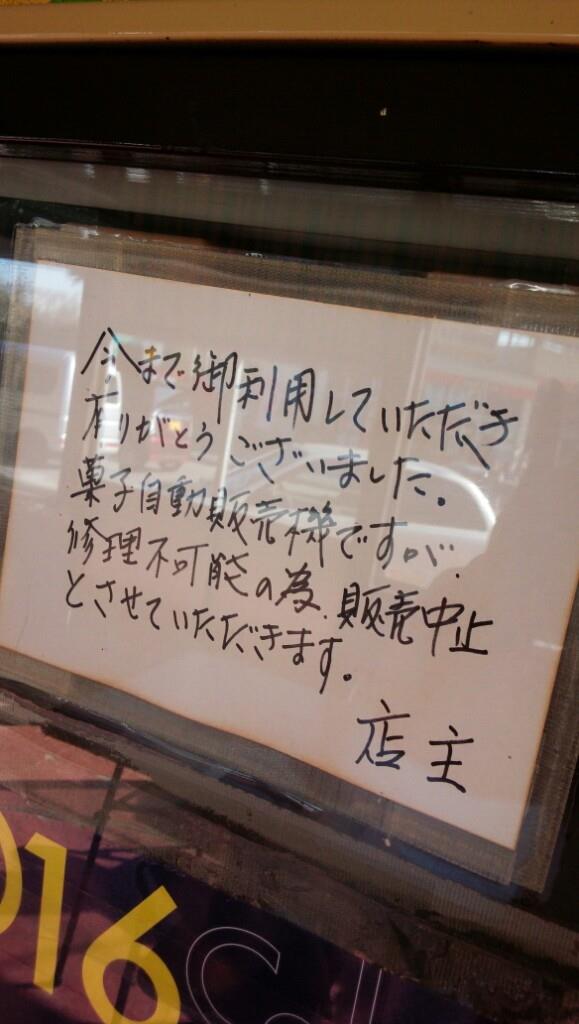 今まで御利用していただき
有りがとうございました。
菓子自動販売機ですが、
修理不可能の為、販売中止
とさせていただきます。
店主
016